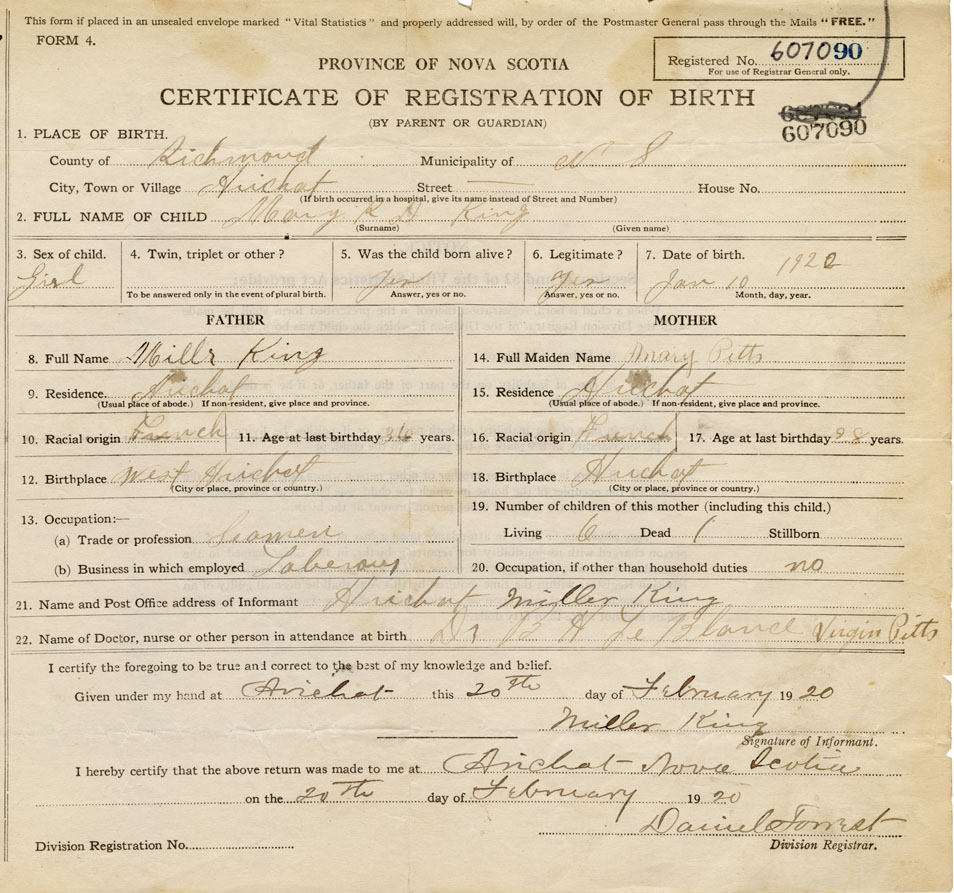 This form if placed in an unsealed envelope marked "Vital Statistics" and properly addressed will, by order of the Postmaster General pass through the Mails "FREE."
FORM 4.
Registered No. 607090
For use of Registrar General only.
PROVINCE OF NOVA SCOTIA
CERTIFICATE OF REGISTRATION OF BIRTH
(BY PARENT OR GUARDIAN)
607090
1. PLACE OF BIRTH.
County of Richmond Municipality of N S
City, Town or Village Arichat Street — House No.
(If birth occurred in a hospital, give its name instead of Street and Number)
2. FULL NAME OF CHILD Mary R D King
(Surname) (Given name)
3. Sex of child. 4. Twin, triplet or other? 5. Was the child born alive? 6. Legitimate? 7. Date of birth.
Girl Yes Yes Jan 10 1920
To be answered only in the event of plural birth. Answer, yes or no. Answer, yes or no. Month, day, year.
FATHER MOTHER
8. Full Name King 14. Full Maiden Name Mary Pitts
9. Residence. Arichat 15. Residence Arichat
(Usual place of abode.) If non-resident, give place and province. (Usual place of abode.) If non-resident, give place and province.
10. Racial origin French 11. Age at last birthday 36 years. 16. Racial origin French 17. Age at last birthday years.
12. Birthplace West Arichat 18. Birthplace Arichat
(City or place, province or country.) (City or place, province or country.)
13. Occupation:— 19. Number of children of this mother (including this child.)
(a) Trade or profession Seamen Living 6 Dead 1 Stillborn
(b) Business in which employed 20. Occupation, if other than household duties no
21. Name and Post Office address of Informant Arichat Miller King
22. Name of Doctor, nurse or other person in attendance at birth Dr B H Le Blanc Virgin Pitts
I certify the foregoing to be true and correct to the best of my knowledge and belief.
Given under my hand at Arichat this 20th day of February 1920
Miller King
Signature of Informant.
I hereby certify that the above return was made to me at Arichat Nova Scotia
on the 20th day of February 1920
Daniel Forrest
Division Registration No. Division Registrar.